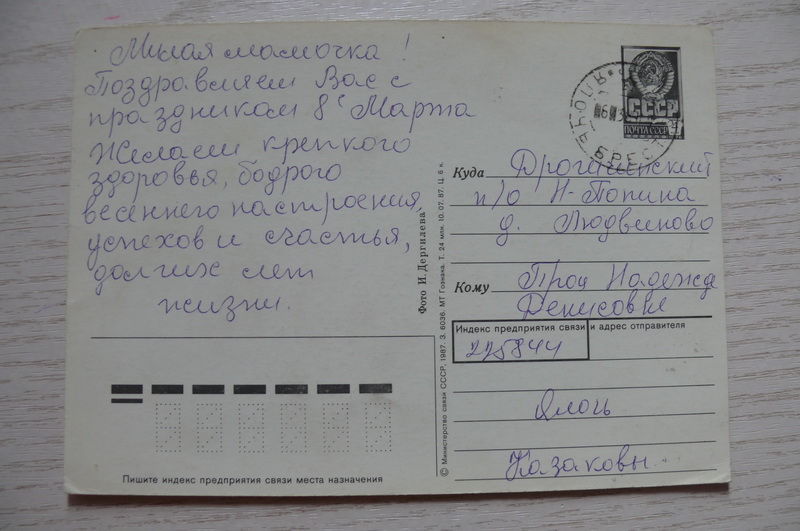 Милая мамочка!
Поздравляем Вас с
праздником 8 Марта
Желаем крепкого
здоровья, бодрого
весеннего настроения,
успехов и счастья,
долгих лет
жизни.
Пишите индекс предприятия связи места назначения
Фото И. Дергилева
© Министерство связи СССР, 1987. З. 6036. МТ Гознака. Т. 24 млн. 10. 07. 87. Ц. 6 к.
СССР
ПОЧТА СССР
Куда Дрогиченский
п/о Н-Попина
д. Людвиново
Кому Проц Надежде
Денисовне
Индекс предприятия связи и адрес отправителя
225844
Казаковы